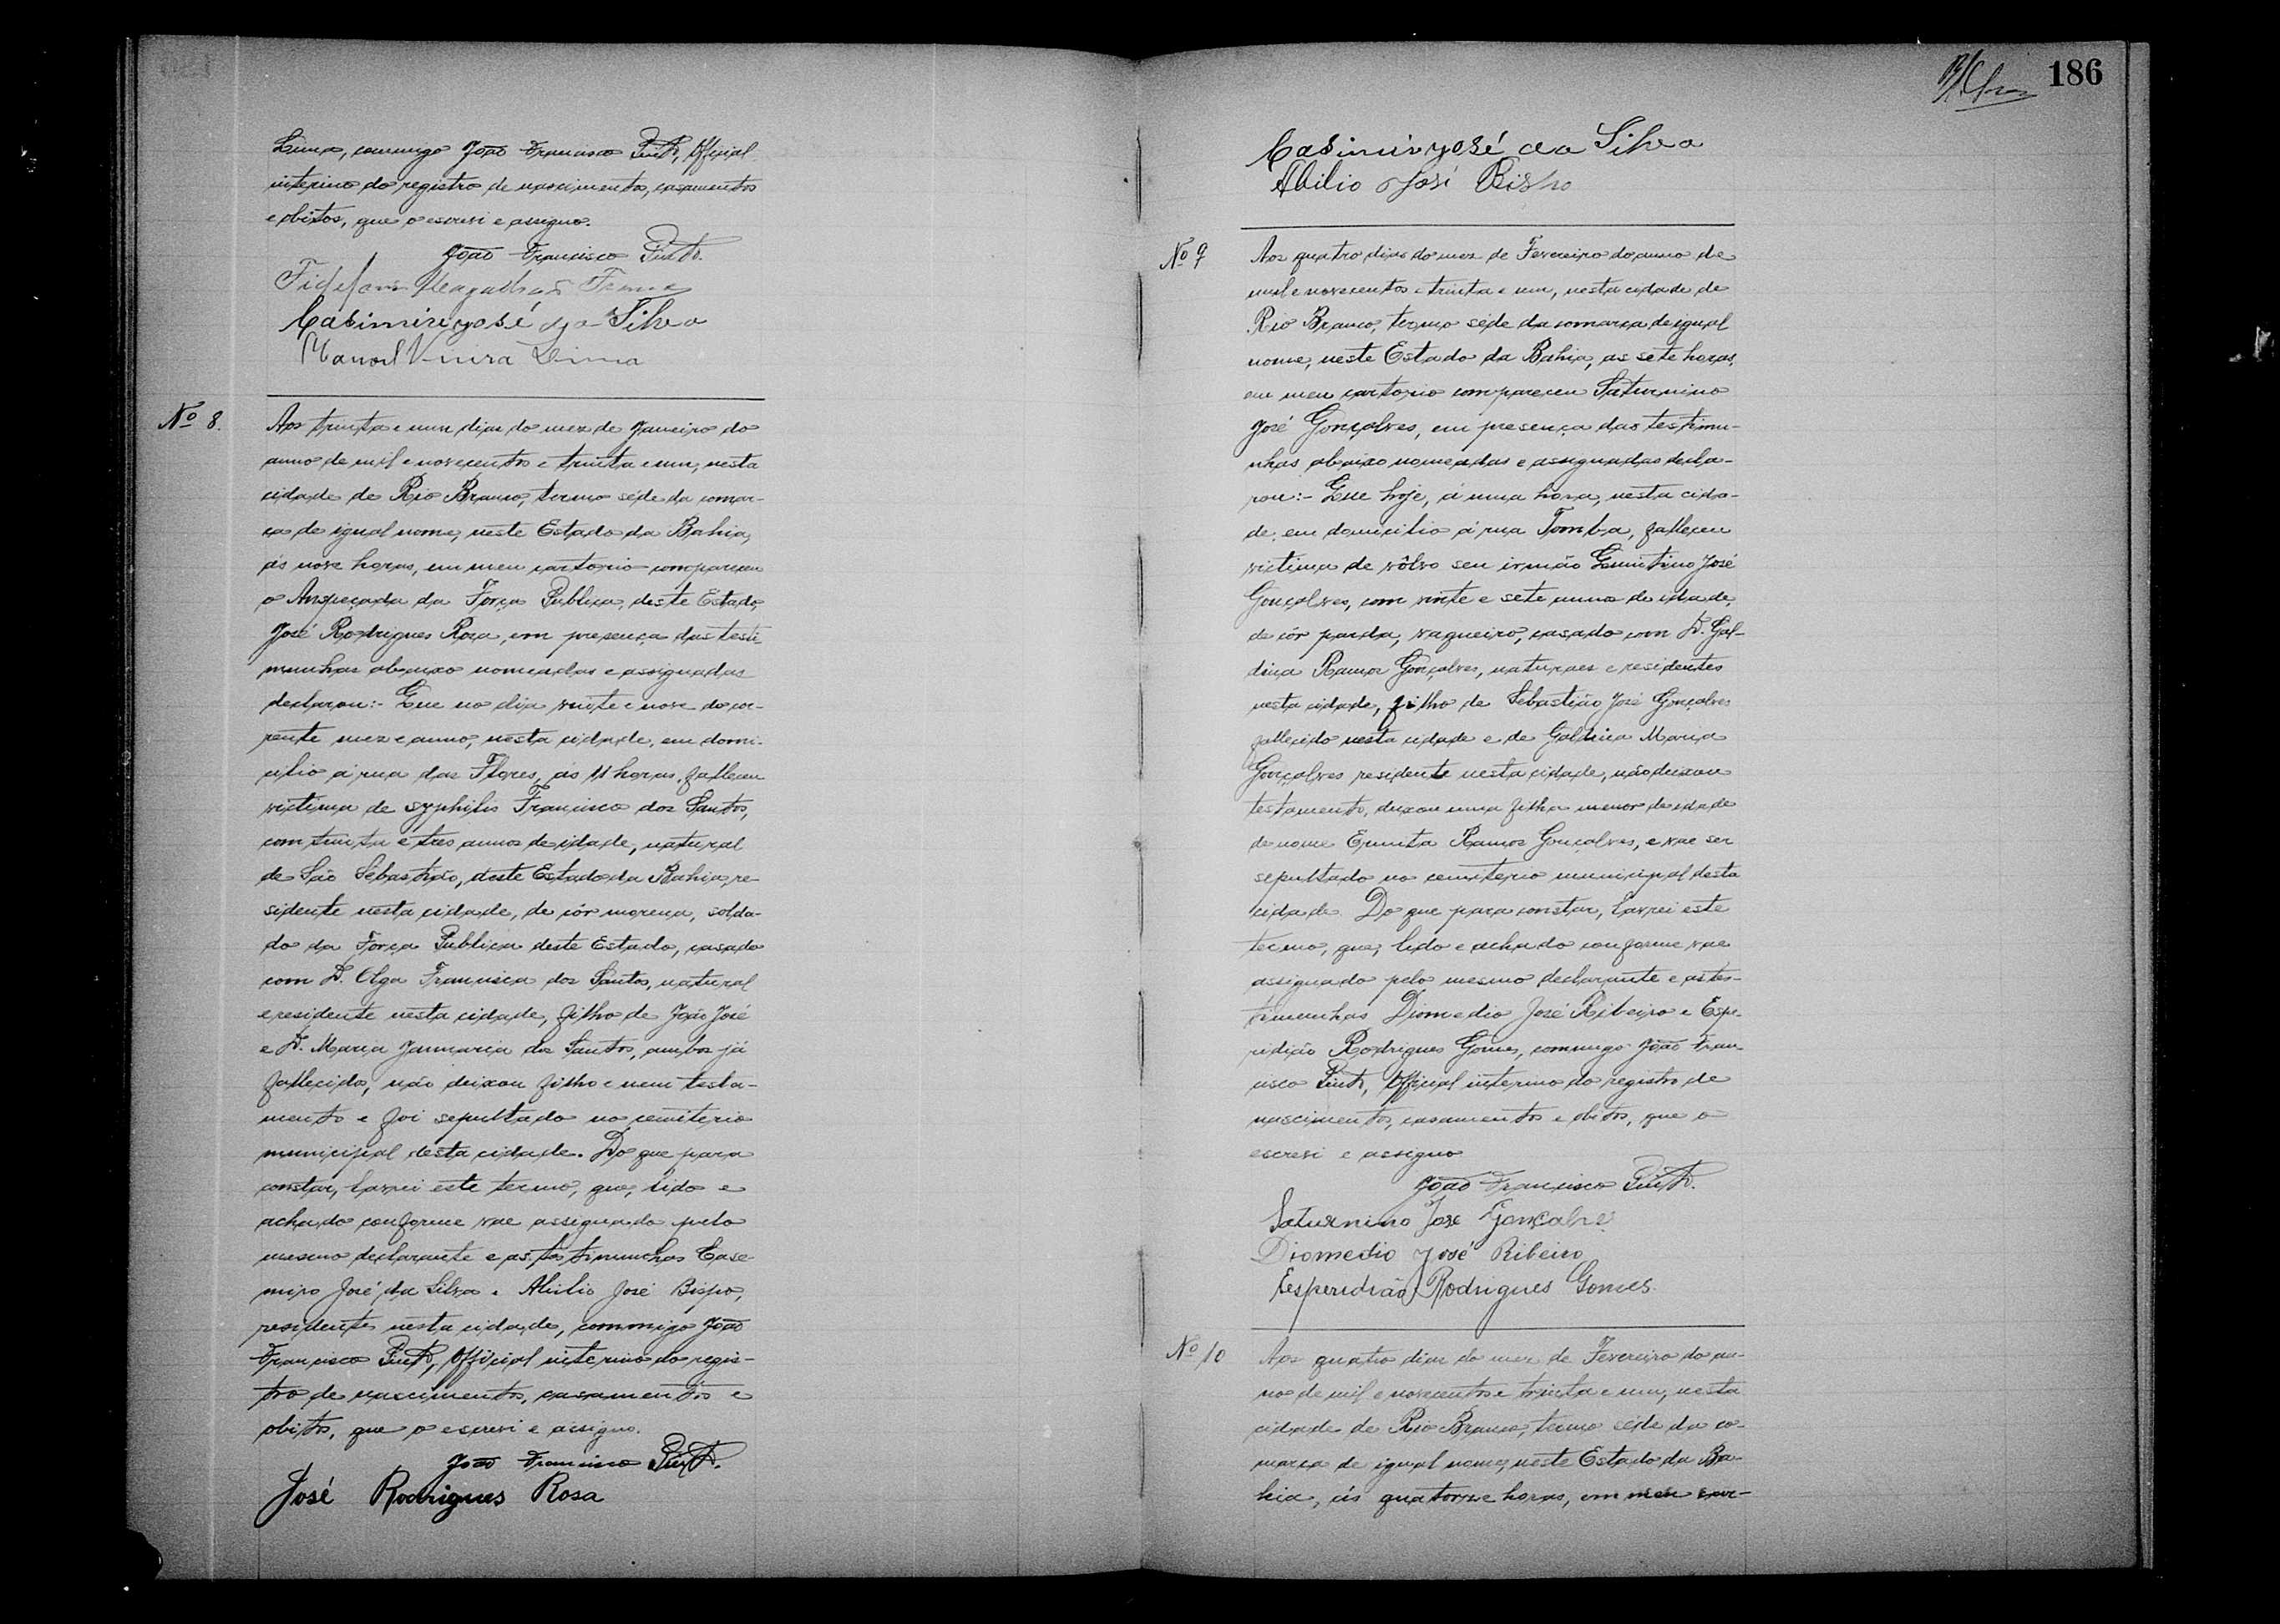 Lima, commigo João Francisco Pinto, Official
interino do registro de nascimentos, casamentos
e obitos, que o escrevi e assigno.
João Francisco Pinto.
Magalhães
Casimiro José da Silva
Manoel Vieira Lima
Nº 8.
Aos trinta e um dias do mez de Janeiro do
anno de mil e novecentos e trinta e um, nesta
cidade de Rio Branco, termo séde da comar-
ca de igual nome, neste Estado da Bahia,
ás nove horas, em meu cartorio compareceu
o Anspeçada da Força Publica, deste Estado,
José Rodrigues Rosa, em presença das testi
munhas abaixo nomeadas e assignadas
declarou:- Que no dia vinte e nove do cor-
rente mez e anno, nesta cidade, em domi-
cilio á rua das Flores, ás 11 horas, falleceu
victima de syphilis Francisco dos Santos,
com trinta e tres annos de idade, natural
de São Sebastião, deste Estado da Bahia, re-
sidente nesta cidade, de côr morena, solda-
do da Força Publica deste Estado, casado
com D. Olga Francisca dos Santos, natural
e residente nesta cidade, filho de João José
e D. Maria Januaria dos Santos, ambos já
fallecidos, não deixou filho e nem testa-
mento e foi sepultado no cemiterio
municipal desta cidade. Do que para
constar, lavrei este termo, que, lido e
achado conforme vae assignado pelo
mesmo declarante e as testimunhas Case-
miro José da Silva e Abilio José Bispo,
residentes nesta cidade, commigo João
Francisco Pinto, Official interino do regis-
tro de nascimentos, casamentos e
obitos, que o escrevi e assigno.
João Francisco Pinto.
José Rodrigues Rosa
186
Casimiro José da Silva
Abilio José Bispo
Nº 9
Aos quatro dias do mez de Fevereiro do anno de
mil e novecentos e trinta e um, nesta cidade de
Rio Branco, termo séde da comarca de igual
nome, neste Estado da Bahia, as sete horas,
em meu cartorio compareceu Saturnino
José Gonçalves, em presença das testimu-
nhas abaixo nomeadas e assignadas decla-
rou:- Que hoje, á uma hora, nesta cida-
de, em domicilio á rua Tomba, falleceu
victima de vôlvo seu irmão José
Gonçalves, com vinte e sete annos de idade,
de côr parda, vaqueiro, casado com D. Gal-
dina Ramos Gonçalves, naturaes e residentes
nesta cidade, filho de Sebastião José Gonçalves
fallecido nesta cidade e de Galdina Maria
Gonçalves residente nesta cidade, não deixou
testamento, deixou uma filha menor de idade
de nome Ramos Gonçalves, e vae ser
sepultado no cemiterio municipal desta
cidade. Do que para constar, lavrei este
termo, que, lido e achado conforme vae
assignado pelo mesmo declarante e as tes-
timunhas Diomedio José Ribeiro e Espe-
ridião Rodrigues Gomes, commigo João Fran-
cisco Pinto, Official interino do registro de
nascimentos, casamentos e obitos, que o
escrevi e assigno
João Francisco Pinto.
Saturnino José Gonçalves
Diomedio José Ribeiro
Esperidião Rodrigues Gomes.
Nº 10
Aos quatro dias do mez de Fevereiro do an-
no de mil e novecentos e trinta e um, nesta
cidade de Rio Branco, termo séde da co-
marca de igual nome, neste Estado da Ba-
hia, ás quatorze horas, em meu car-